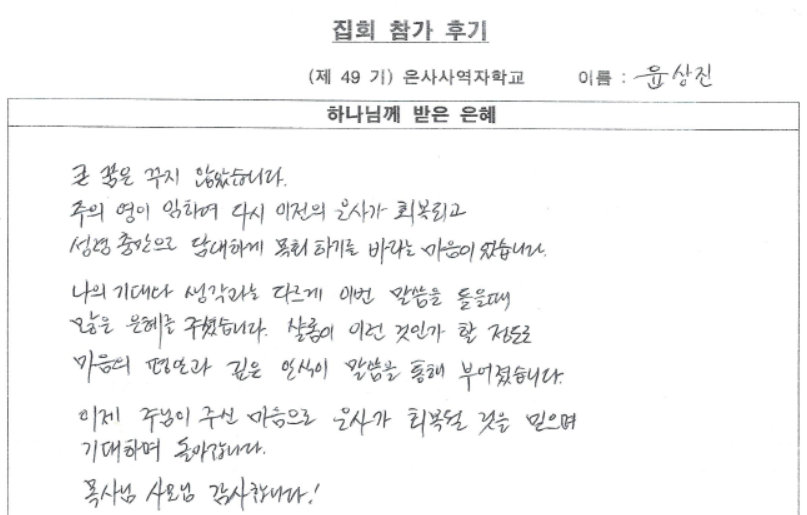 집회 참가 후기
(제 49 기) 은사사역자학교 이름 : 윤상진
하나님께 받은 은혜
큰 꿈은 꾸지 않았습니다.
주의 영이 임하여 다시 이전의 은사가 회복되고
성령 충만으로 담대하게 목회 하기를 바라는 마음이었습니다.
나의 기대나 생각과는 다르게 이번 말씀을 들을때
많은 은혜를 주셨습니다. 샬롬이 이런 것인가 할 정도로
마음의 평안과 깊은 안식이 말씀을 통해 부어졌습니다.
이제 주님이 주신 마음으로 은사가 회복될 것을 믿으며
기대하며 돌아갑니다.
목사님 사모님 감사합니다!